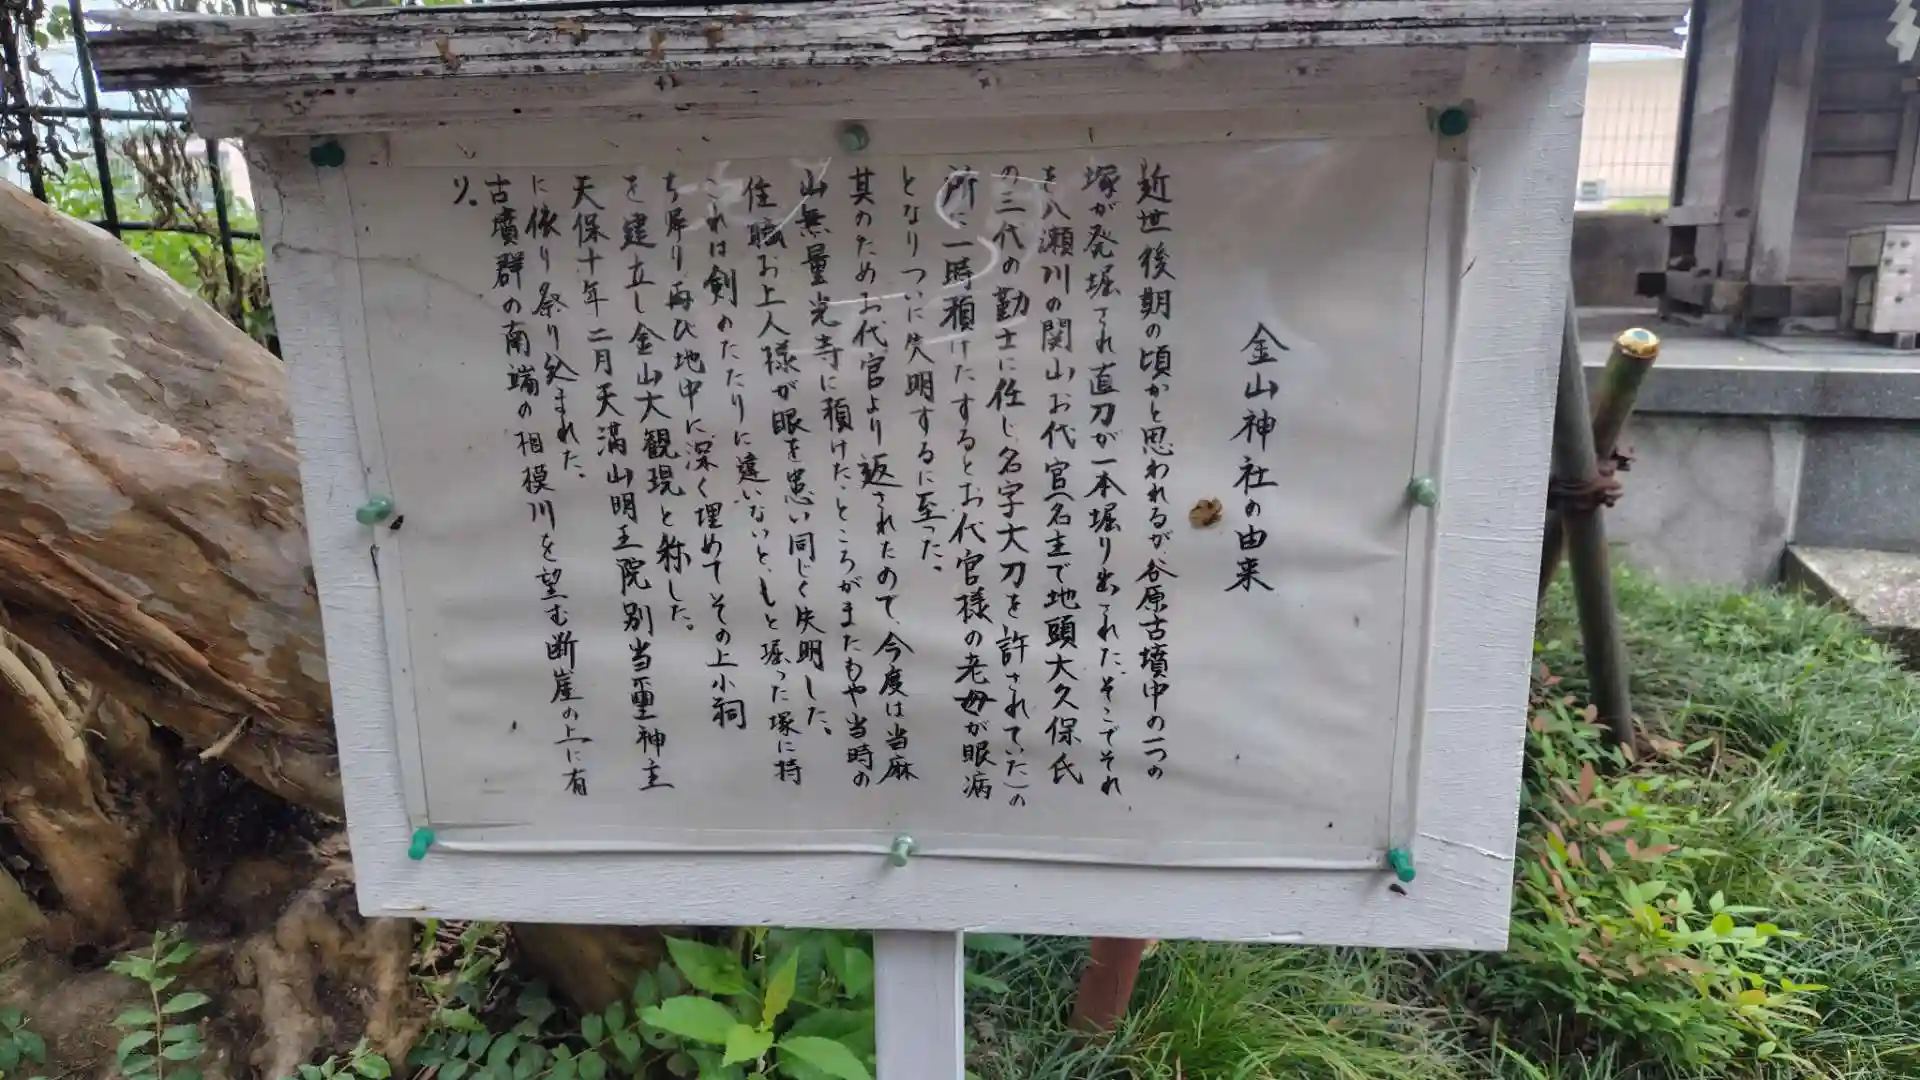 金山神社の由来
近世後期の頃かと思われるが、谷原古墳中の一つの
塚が発堀され直刀が一本堀り出された。そこでそれ
を八瀬川の関山お代官(名主で地頭大久保氏
の三代の勤士に任じ名字大刀を許されていた)の
所に一時預けたするとお代官様の老母が眼病
となりついに失明するに至った。
其のためお代官より返されたので、今度は当麻
山無量光寺に預けたところがまたもや当時の
住職お上人様が眼を患い同じく失明した。
これは剣のたたりに違いないと、もと堀った塚に持
ち帰り再び地中に深く埋めてその上小祠
を建立し金山大観現と称した。
天保十年二月天満山明王院別当 神主
に依り祭り込まれた。
古墳群の南端の相模川を望む断崖の上に有
り。